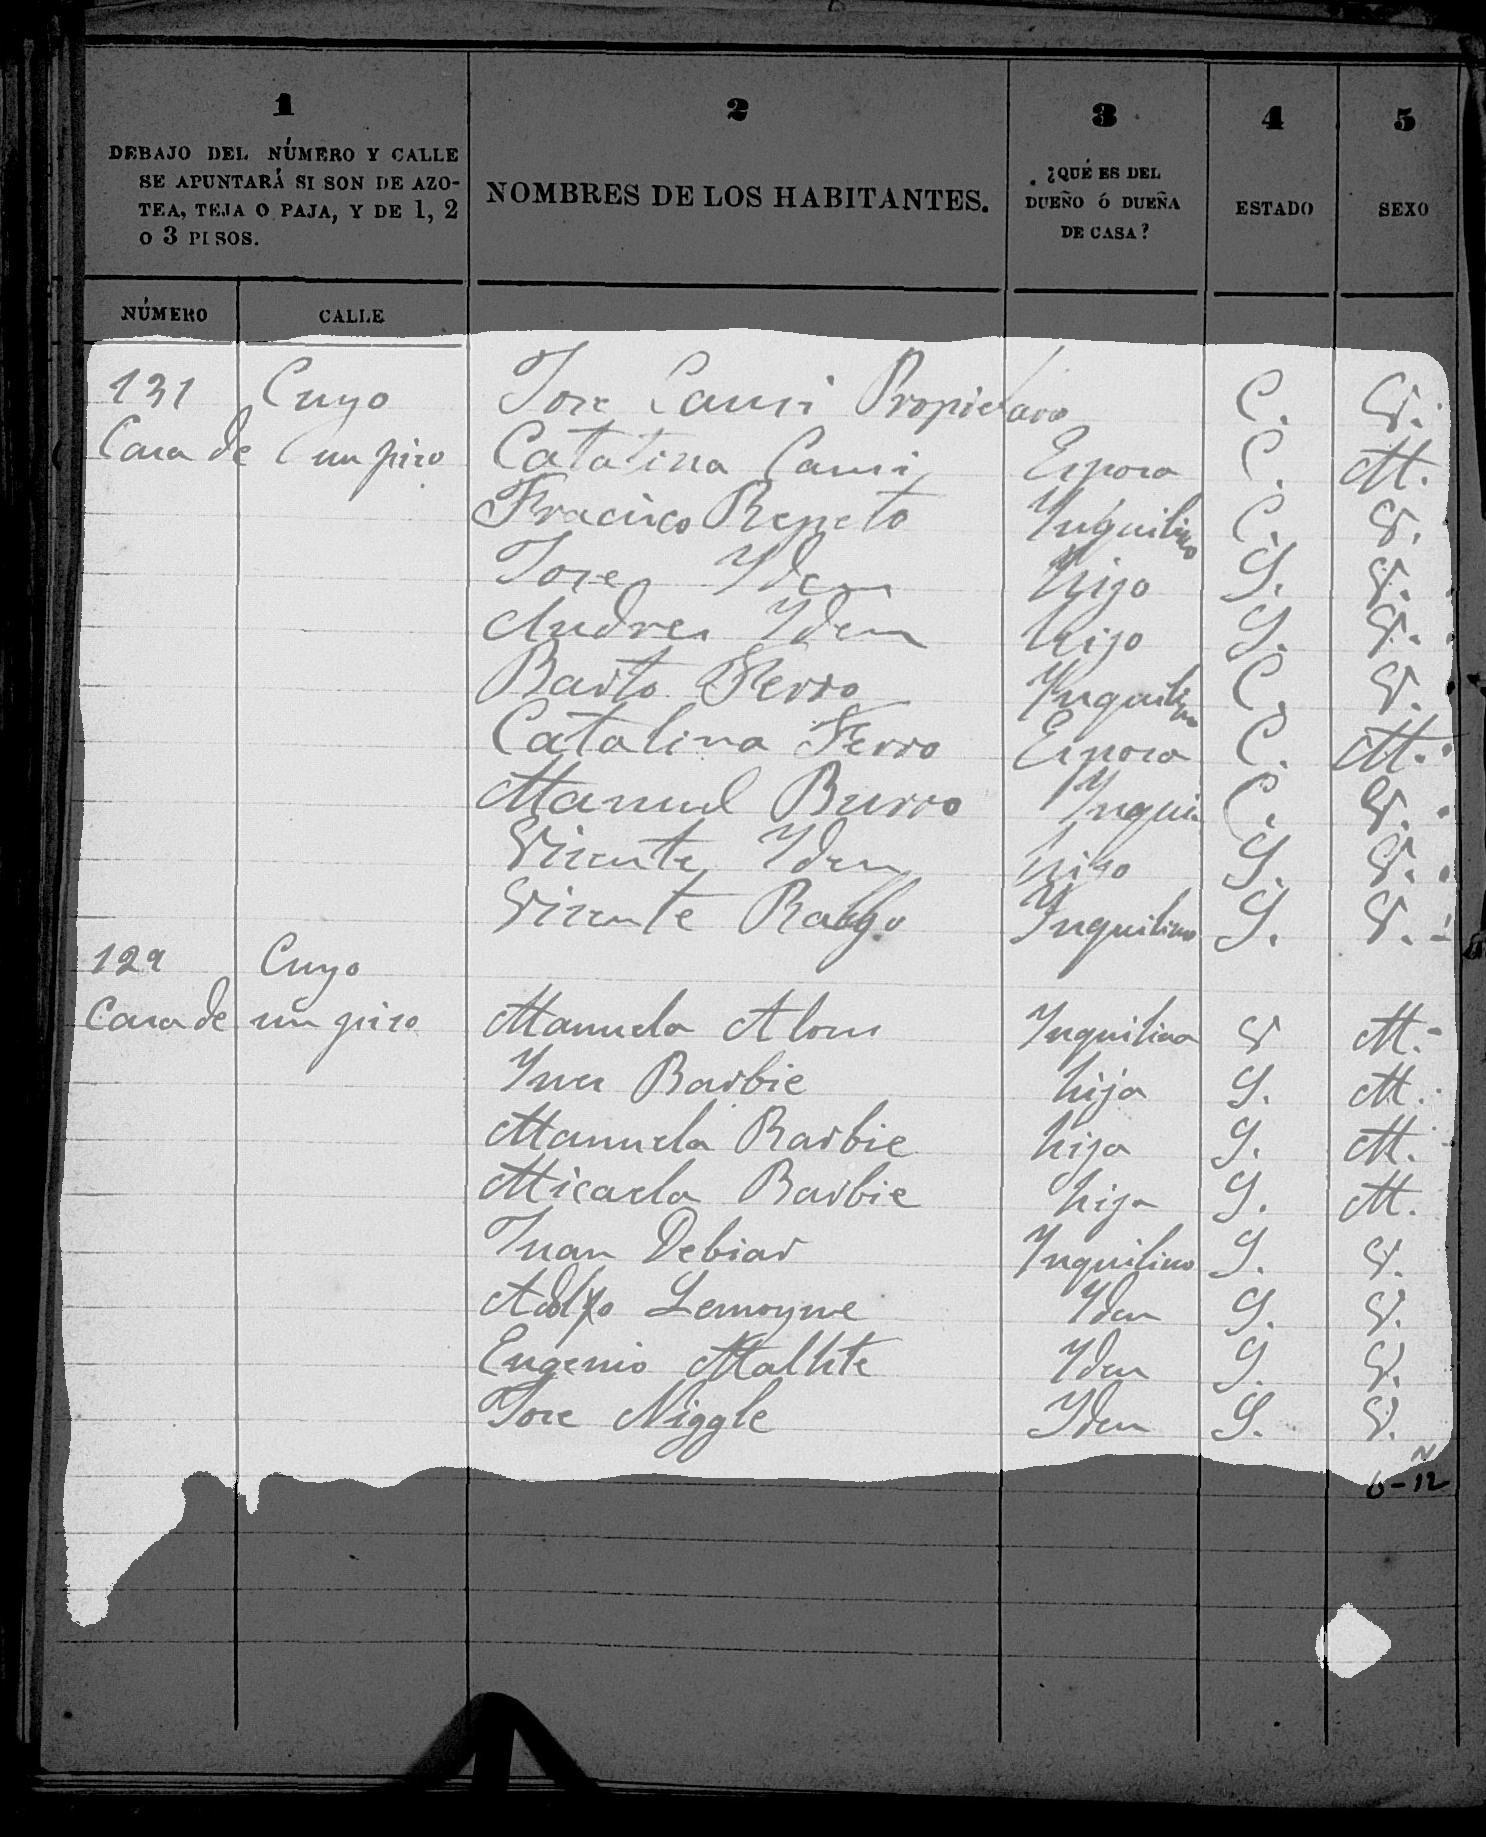 1
2
3
4
5
DEBAJO DEL NÚMERO Y CALLE
SE APUNTARÁ SI SON DE AZO-
TEA, TEJA O PAJA, Y DE 1, 2
O 3 PISOS.
NOMBRES DE LOS HABITANTES.
¿QUÉ ES DEL
DUEÑO Ó DUEÑA
DE CASA?
ESTADO
SEXO
NÚMERO CALLE
131 Cuyo Jose Propietario C. V.
Casa de un piso Catalina Esposa C. M.
Fracisco Repeto Inquilino C. V.
Jose Ydem hijo S. V.
Andres Ydem hijo S. V.
Barto Ferro Inquilino C. V.
Catalina Ferro Esposa C. M.
Manuel Burro Inqui C. V.
Vicente Ydem hijo S. V.
Vicente Inquilino S. V.
129 Cuyo
Casa de un piso Manuela Inquilina V M.
Ynes Barbie hija S. M.
Manuela Barbie hija S. M.
Micaela Barbie hija S. M.
Juan Debiar Inquilino S. V.
Adolfo Lemoyne Yden S. V.
Eugenio Yden S. V.
Jose Niggle Yden S. V.
6-12